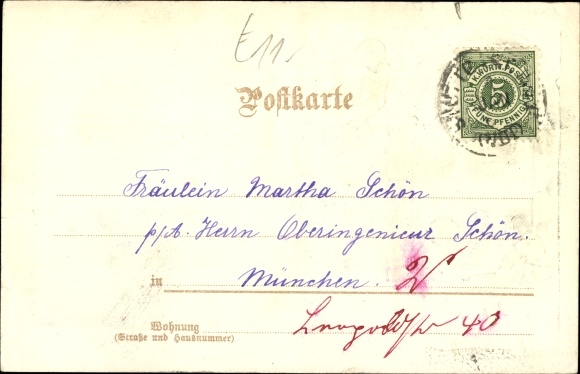 E11.
K.WÜRTT. POST
5
FÜNF PFENNIG
Postkarte
Fräulein Martha Schön
p/A. Herrn Oberingenieur Schön.
in München. V
Wohnung
(Straße und Hausnummer)
Leopoldstr 40